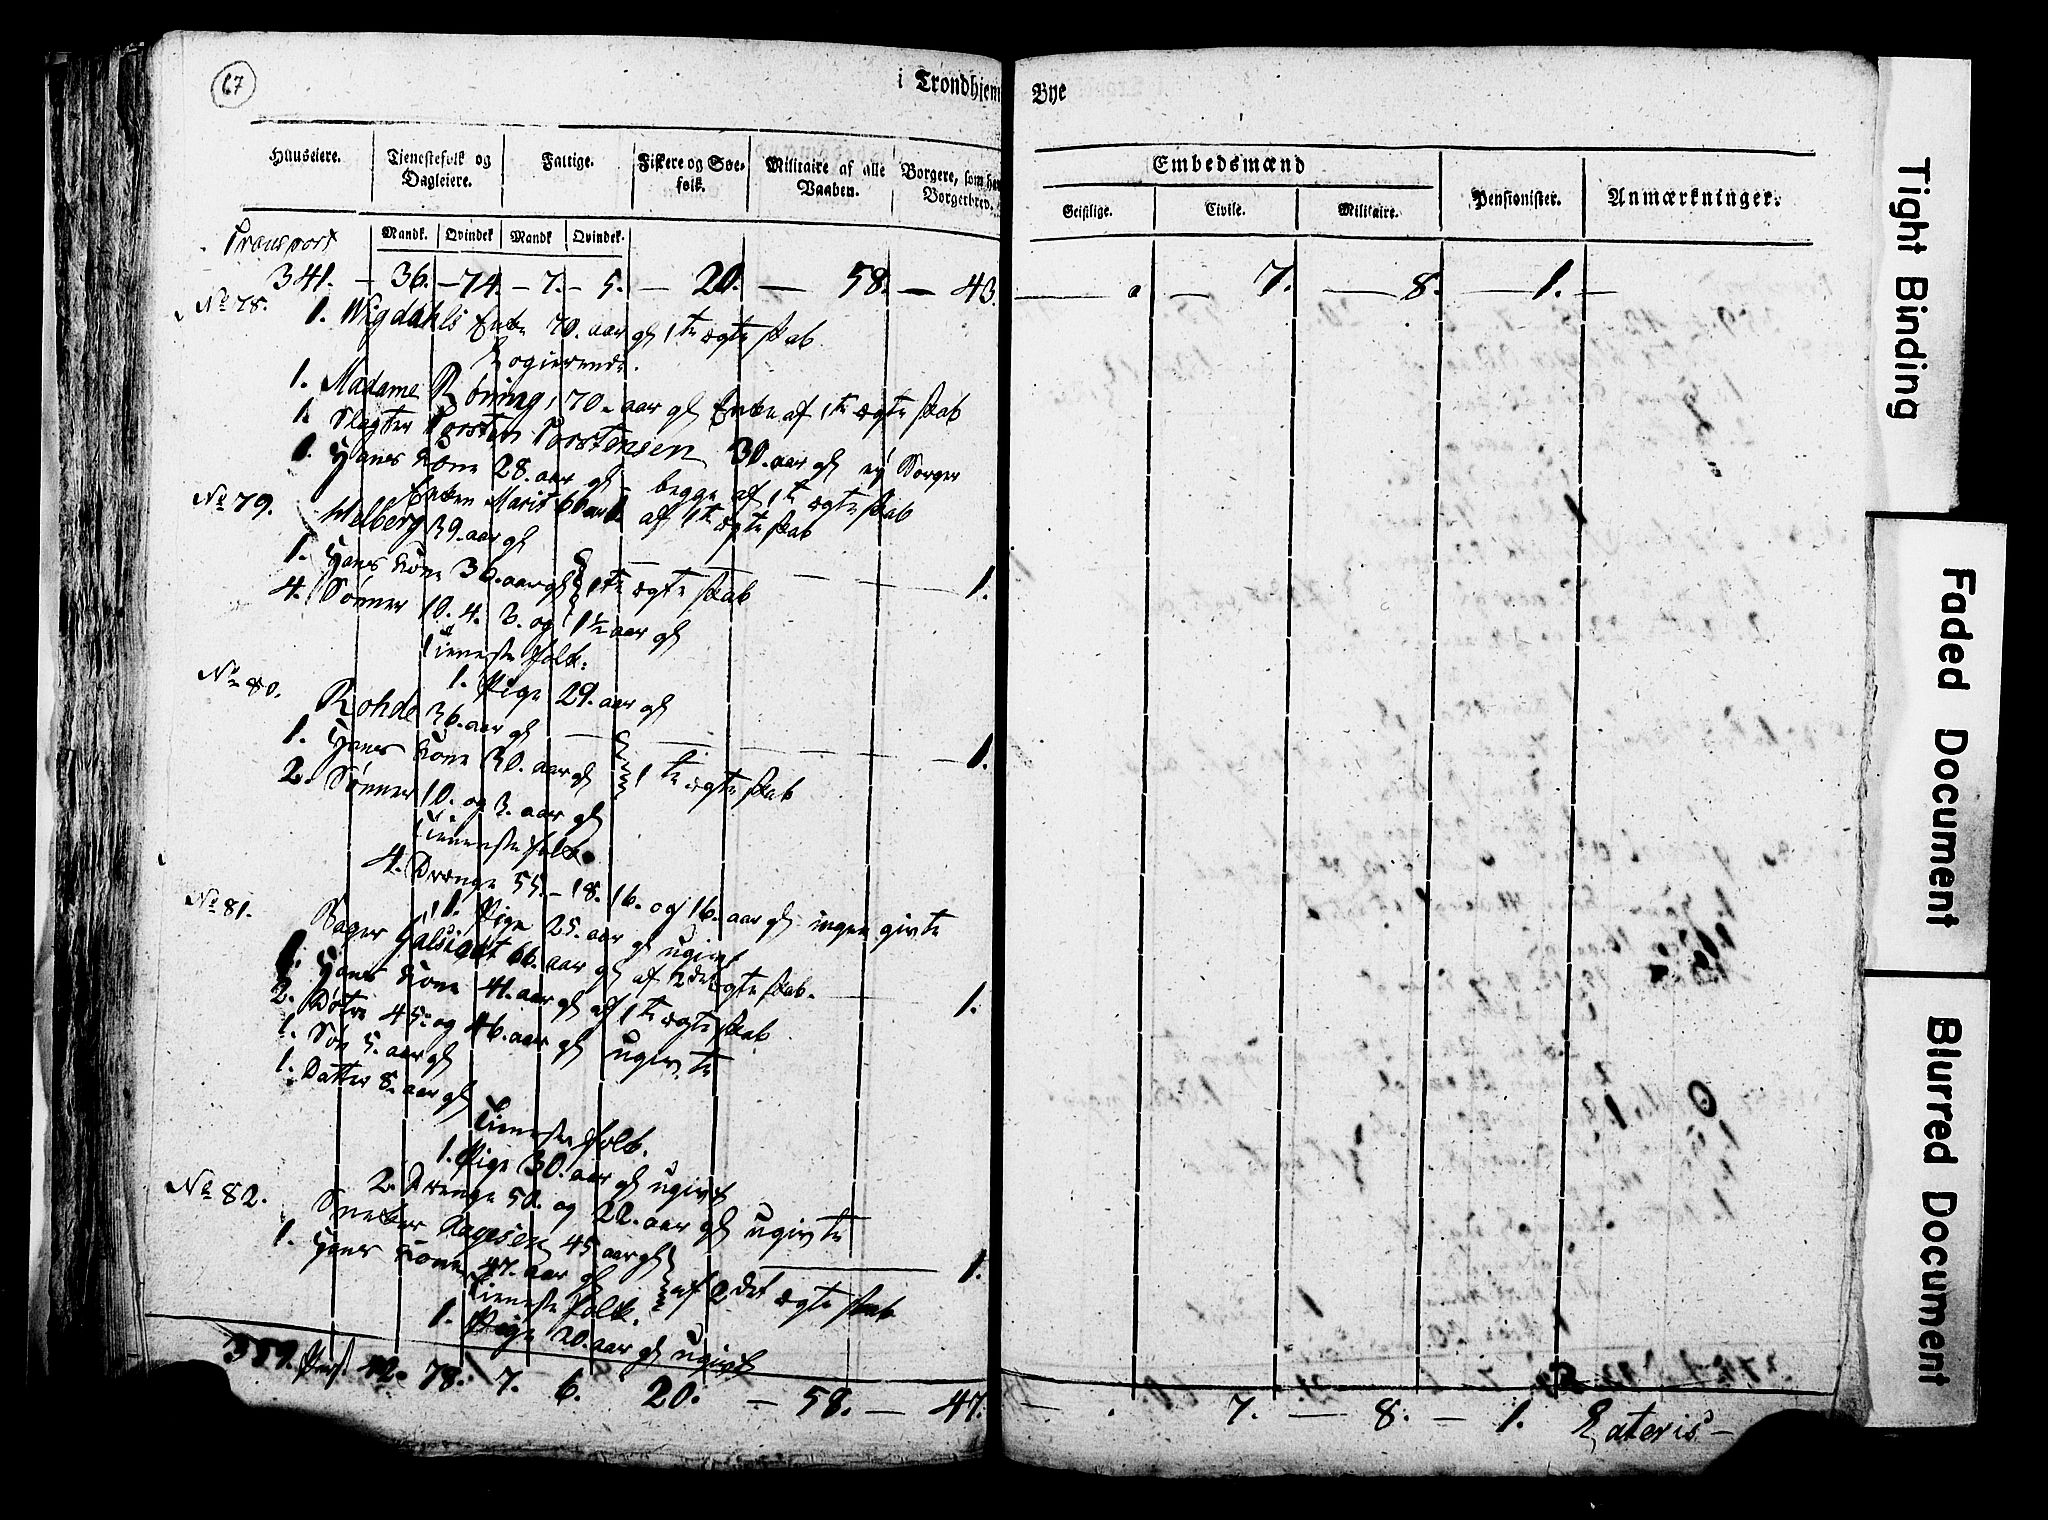 67
i Trondhjem Bye
Huuseiere.
Tjenestefolk og Dagleiere.
Fattige.
Fiskere og Søe-folk.
Militaire af alle Vaaben.
Borgere, som have Borgerbrev.
Embedsmænd
Geistlige.
Civile.
Militaire.
Pensionister.
Anmærkninger.
Mandk. Qvindek. Mandk. Qvindek.
Transport
341. – 36. – 74. – 7. – 5. 20. – 58. – 43. 7. – 8. – 1. –
No 78. 1. Wigdahls Enke 70. aar gl 1te ægteskab
Logierende.
1. Madame Röning, 70. aar gl Enke af 1te ægteskab
1. Slagter Torsten Torstensen 30. aar gl ej Borger
1. Hans Kone 28. aar gl – begge af 1te ægteskab
Enken Marit 66 aar af 1te ægteskab
No 79. Melberg 39. aar gl
1. Hans Kone 30. aar gl 1te ægteskab 1.
4. Sönner 10. 4. 3. og 1½ aar gl
Tieneste folk:
1. Pige 29. aar gl
No 80. Rohde 36. aar gl
1. Hans Kone 30. aar gl 1te ægteskab 1.
2. Sönner 10. og 3. aar gl
Tieneste folk.
4. Drenge 55. – 18. 16. og 16. aar gl ingen givte
1. Pige 25. aar gl ugivt
No 81. Bager 66. aar gl af 2det ægteskab. 1.
1. Hans Kone 41. aar gl af 1te ægteskab
2. Døtre 45. og 46. aar gl ugivte
1. Søn 5. aar gl
1. Datter 8. aar gl
Tieneste folk.
1. Pige 30. aar gl ugivt
2. Drenge 50. og 22. aar gl ugivte
No 82. Sneker Aagesen 45 aar gl
1. Hans Kone 47. aar gl af 2det ægteskab 1.
Tieneste folk.
1. Pige 20. aar gl ugivt
359. 42. 78. 7. 6. 20. – 58. – 47. 7. – 8. – 1. Lateris –
Tight Binding
Faded Document
Blurred Document